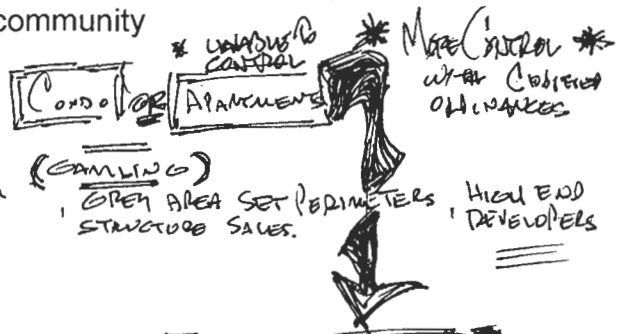 community
* UNABLE TO CONTROL
* MORE CONTROL *
WITH CODIFIED
ORDINANCES
CONDO OR APARTMENTS
(GAMLING)
, GREY AREA SET PERIMETERS
STRUCTURE SALES.
, HIGH END
DEVELOPERS